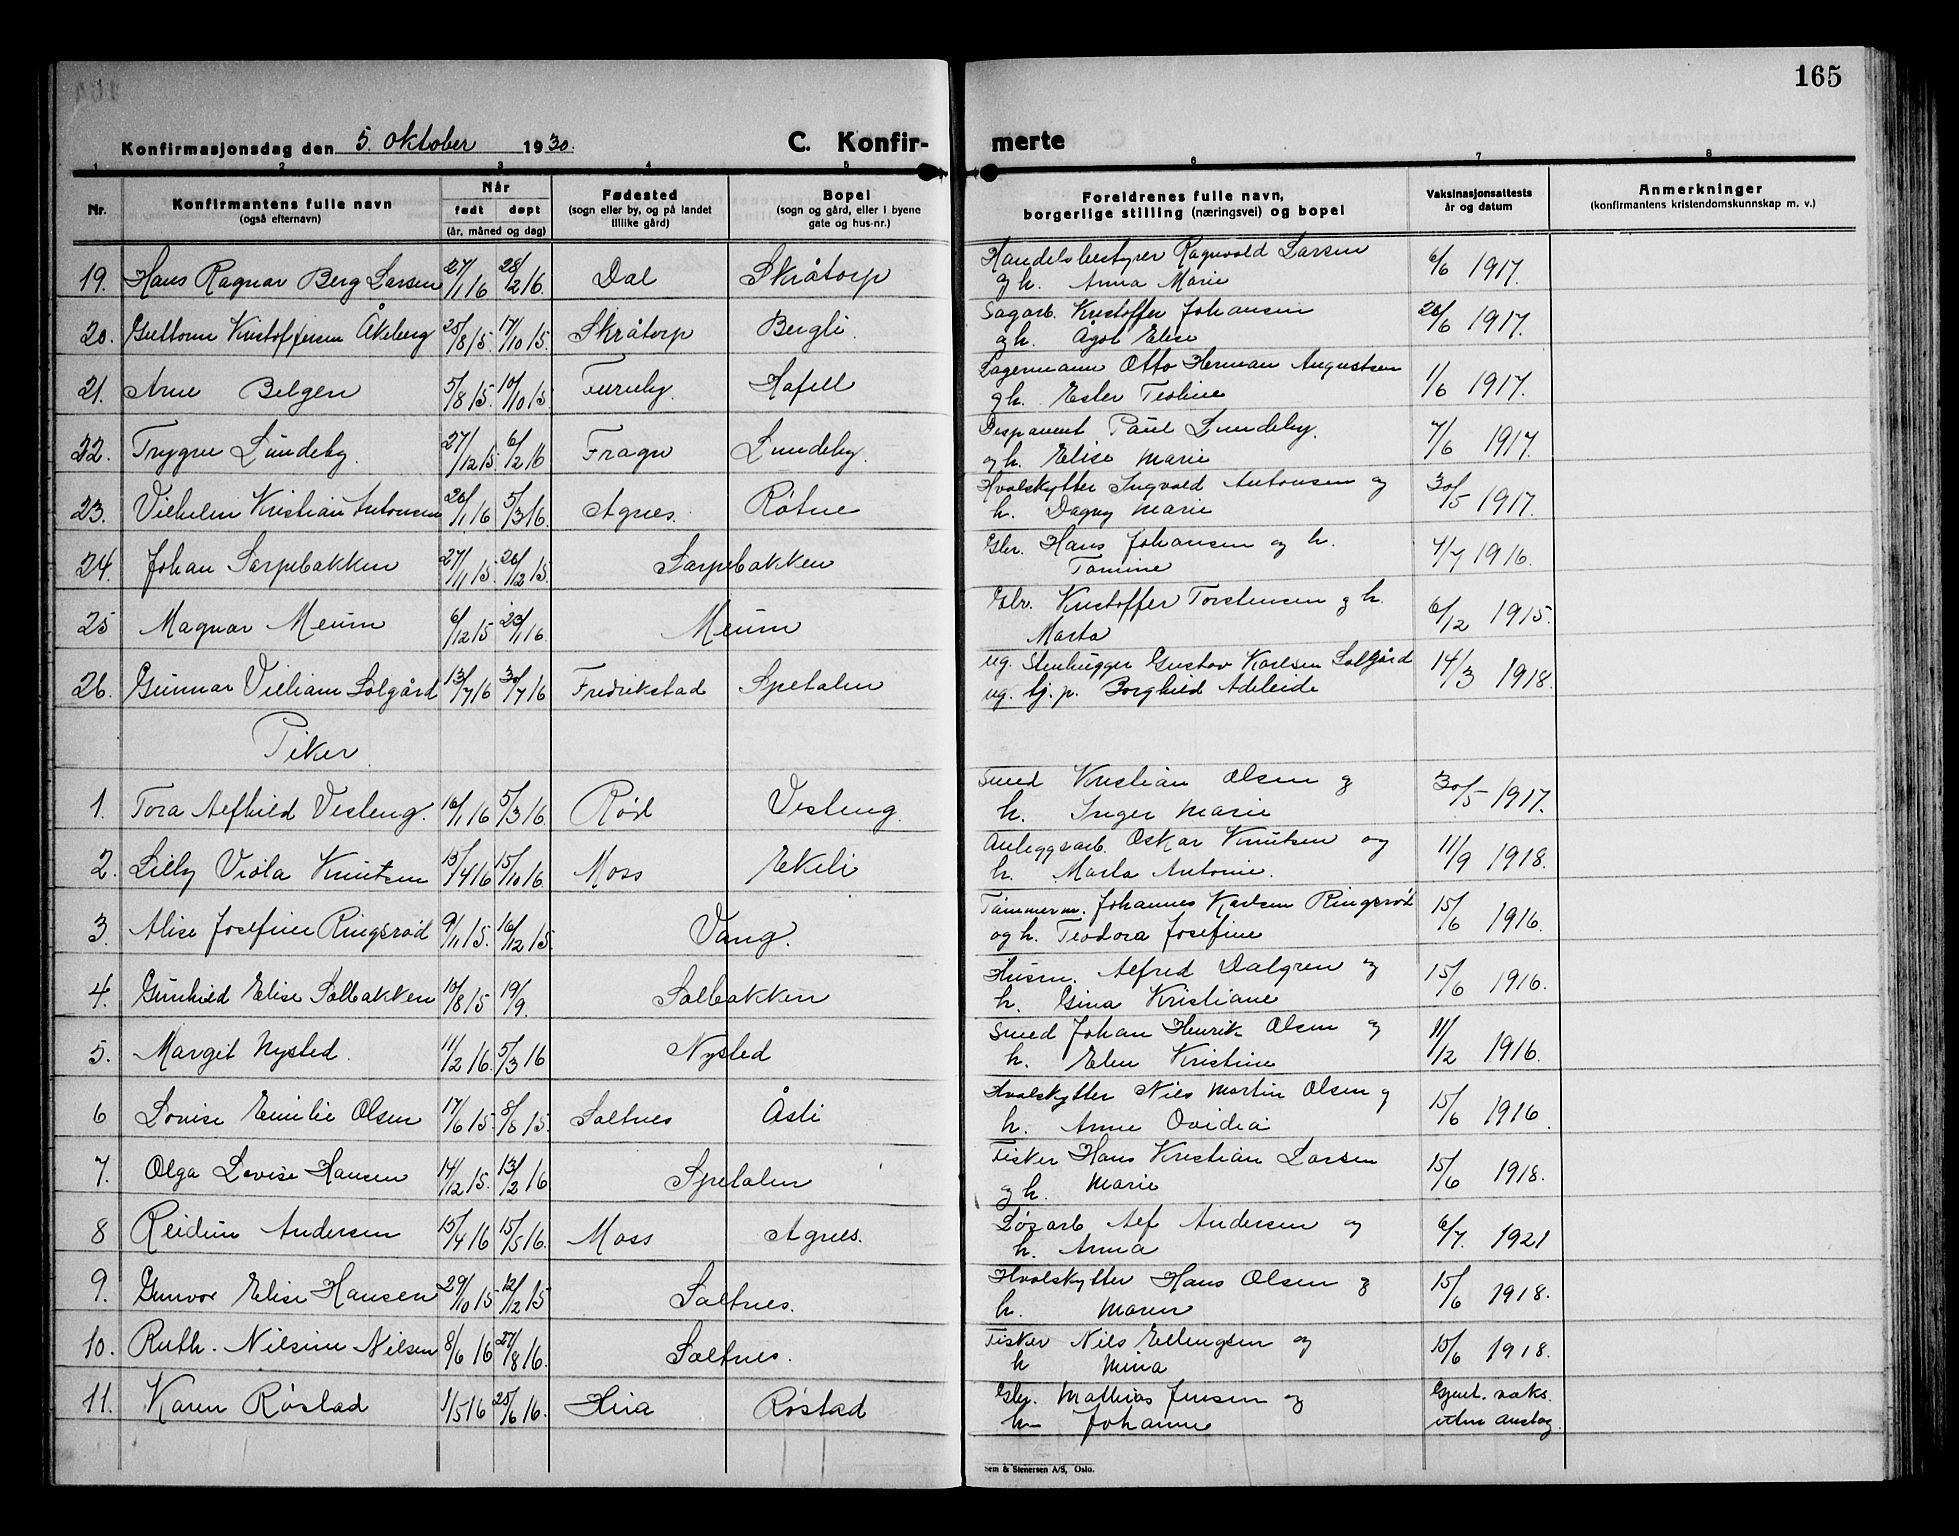 165
Konfirmasjonsdag den 5. oktober 1930.
C. Konfir- merte
1 2 3 4 5 6 7 8
Nr.
Konfirmantens fulle navn
(også efternavn)
Når
født døpt
(år, måned og dag)
Fødested
(sogn eller by, og på landet
tillike gård)
Bopel
(sogn og gård, eller i byene
gate og hus-nr.)
Foreldrenes fulle navn,
borgerlige stilling (næringsvei) og bopel
Vaksinasjonsattests
år og datum
Anmerkninger
(konfirmantens kristendomskunnskap m. v.)
19. Hans Ragnar Berg Larsen 27/1 16 28/2 16. Dal Skråtorp Handelsbestyrer Ragnvald Larsen 6/6 1917.
og h. Anna Marie
20. Guttorm Kristoffersen Åkeberg 25/8 15. 17/10 15. Skråtorp Bergli Sagarb. Kristoffer Johansen 26/6 1917.
og h. Ågot Elise
21. Arne Belgen 5/8 15. 10/10 15 Furuly. Hafell Lagermann Otto Herman Augustsen 1/6 1917.
og h. Ester Teoline
22. Trygve Lundeby. 27/12 15. 6/2 16 Lundeby. Disponent Paul Lundeby. 7/6 1917.
og h. Elise Marie
23. Vilhelm Kristian Antonsen 20/1 16 5/3 16. Agnes. Røtne Hvalskytter Ingvald Antonsen og 30/5 1917.
h. Dagny Marie
24. Johan Sarpebakken 27/11 15. 26/12 15. Sarpebakken Gbr. Hans Johansen og h. 4/7 1916.
Tomine
25 Magnar Meum 6/12 15 23/1 16. Meum Gbr. Kristoffer Torstensen og h. 6/12 1915.
Marta
26. Gunnar Villiam Solgård 13/7 16 30/7 16 Fredrikstad Spetalen ug. Stenhugger Gustav Karlsen Solgård 14/3 1918.
ug. tj. p. Borghild Adeleide
Piker.
1. Tora Alfhild Vesteng. 16/1 16 5/3 16. Rød Vesteng. Smed Kristian Olsen og 30/5 1917.
h. Inger Marie
2. Lilly Viola Knutsen 15/4 16 15/10 16. Moss Ekeli Anleggsarb. Oskar Knutsen og 11/9 1918.
h. Marta Antonie.
3. Alise Josefine Ringsrød 9/11 15. 16/12 15. Vang. Tømmerm. Johannes Karlsen Ringsrød 15/6 1916.
og h. Teodora Josefine
4. Gunhild Elise Solbakken 10/8 15 19/9. Solbakken Husm. Alfred Dalgren og 15/6 1916.
h. Gina Kristiane
5. Margit Nysted. 11/2 16. 5/3 16 Nysted Smed Johan Henrik Olsen og 11/12 1916.
h. Elen Kristine
6 Lovise Emilie Olsen 17/6 15. 8/8 15. Saltnes Åsli Hvalskytter Nils Martin Olsen og 15/6 1916.
h. Anne Ovidia
7. Olga Lovise Hansen 14/12 15. 13/2 16 Spetalen Fisker Hans Kristian Larsen 15/6 1918.
og h. Marie
8 Reidun Andersen 15/4 16 15/5 16. Moss Agnes. Løsarb. Alf Andersen og 6/7. 1921
h. Anna
9. Gunvor Elise Hansen 29/10 15 12/12 15 Saltnes. Hvalskytter Hans Olsen og 15/6 1918.
h. Maren
10. Ruth. Nilsine Nilsen 8/6 16 27/8 16. Saltnes. Fisker Nils Ellingsen og 15/6 1918.
h Mina
11. Karen Røstad 1/5 16 25/6 16. Hua Røstad Gbr. Mathias Jensen og Gjent. vaks.
h- Johanne uten anslag.
Sem & Stenersen A/S, Oslo.